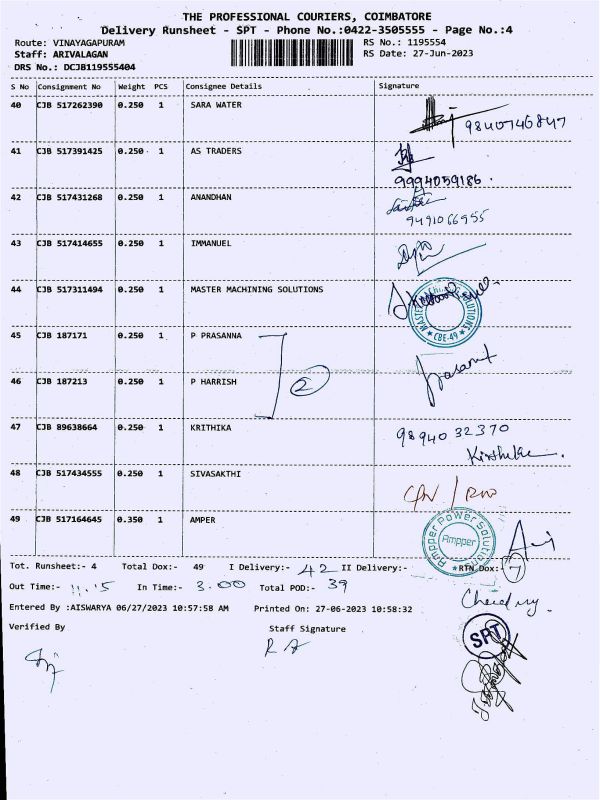 THE PROFESSIONAL COURIERS, COIMBATORE
Delivery Runsheet - SPT - Phone No.:0422-3505555 - Page No.:4
Route: VINAYAGAPURAM RS No.: 1195554
Staff: ARIVALAGAN RS Date: 27-Jun-2023
DRS No.: DCJB119555404
S No Consignment No Weight PCS Consignee Details Signature
40 CJB 517262390 0.250 1 SARA WATER
9840746847
41 CJB 517391425 0.250 1 AS TRADERS
9994059186.
42 CJB 517431268 0.250 1 ANANDHAN
9491066955
43 CJB 517414655 0.250 1 IMMANUEL
44 CJB 517311494 0.250 1 MASTER MACHINING SOLUTIONS
CBE-49
45 CJB 187171 0.250 1 P PRASANNA
Prasanna
2
46 CJB 187213 0.250 1 P HARRISH
47 CJB 89638664 0.250 1 KRITHIKA 9894032370
Krithika
48 CJB 517434555 0.250 1 SIVASAKTHI
49 CJB 517164645 0.350 1 AMPER
Ampper Power Solutions
Ampper
Tot. Runsheet:- 4 Total Dox:- 49 I Delivery:- 42 II Delivery:- RTN Dox:- 7
Out Time:- 11.15 In Time:- 3.00 Total POD:- 39
Entered By :AISWARYA 06/27/2023 10:57:58 AM Printed On: 27-06-2023 10:58:32
Verified By Staff Signature
SPT